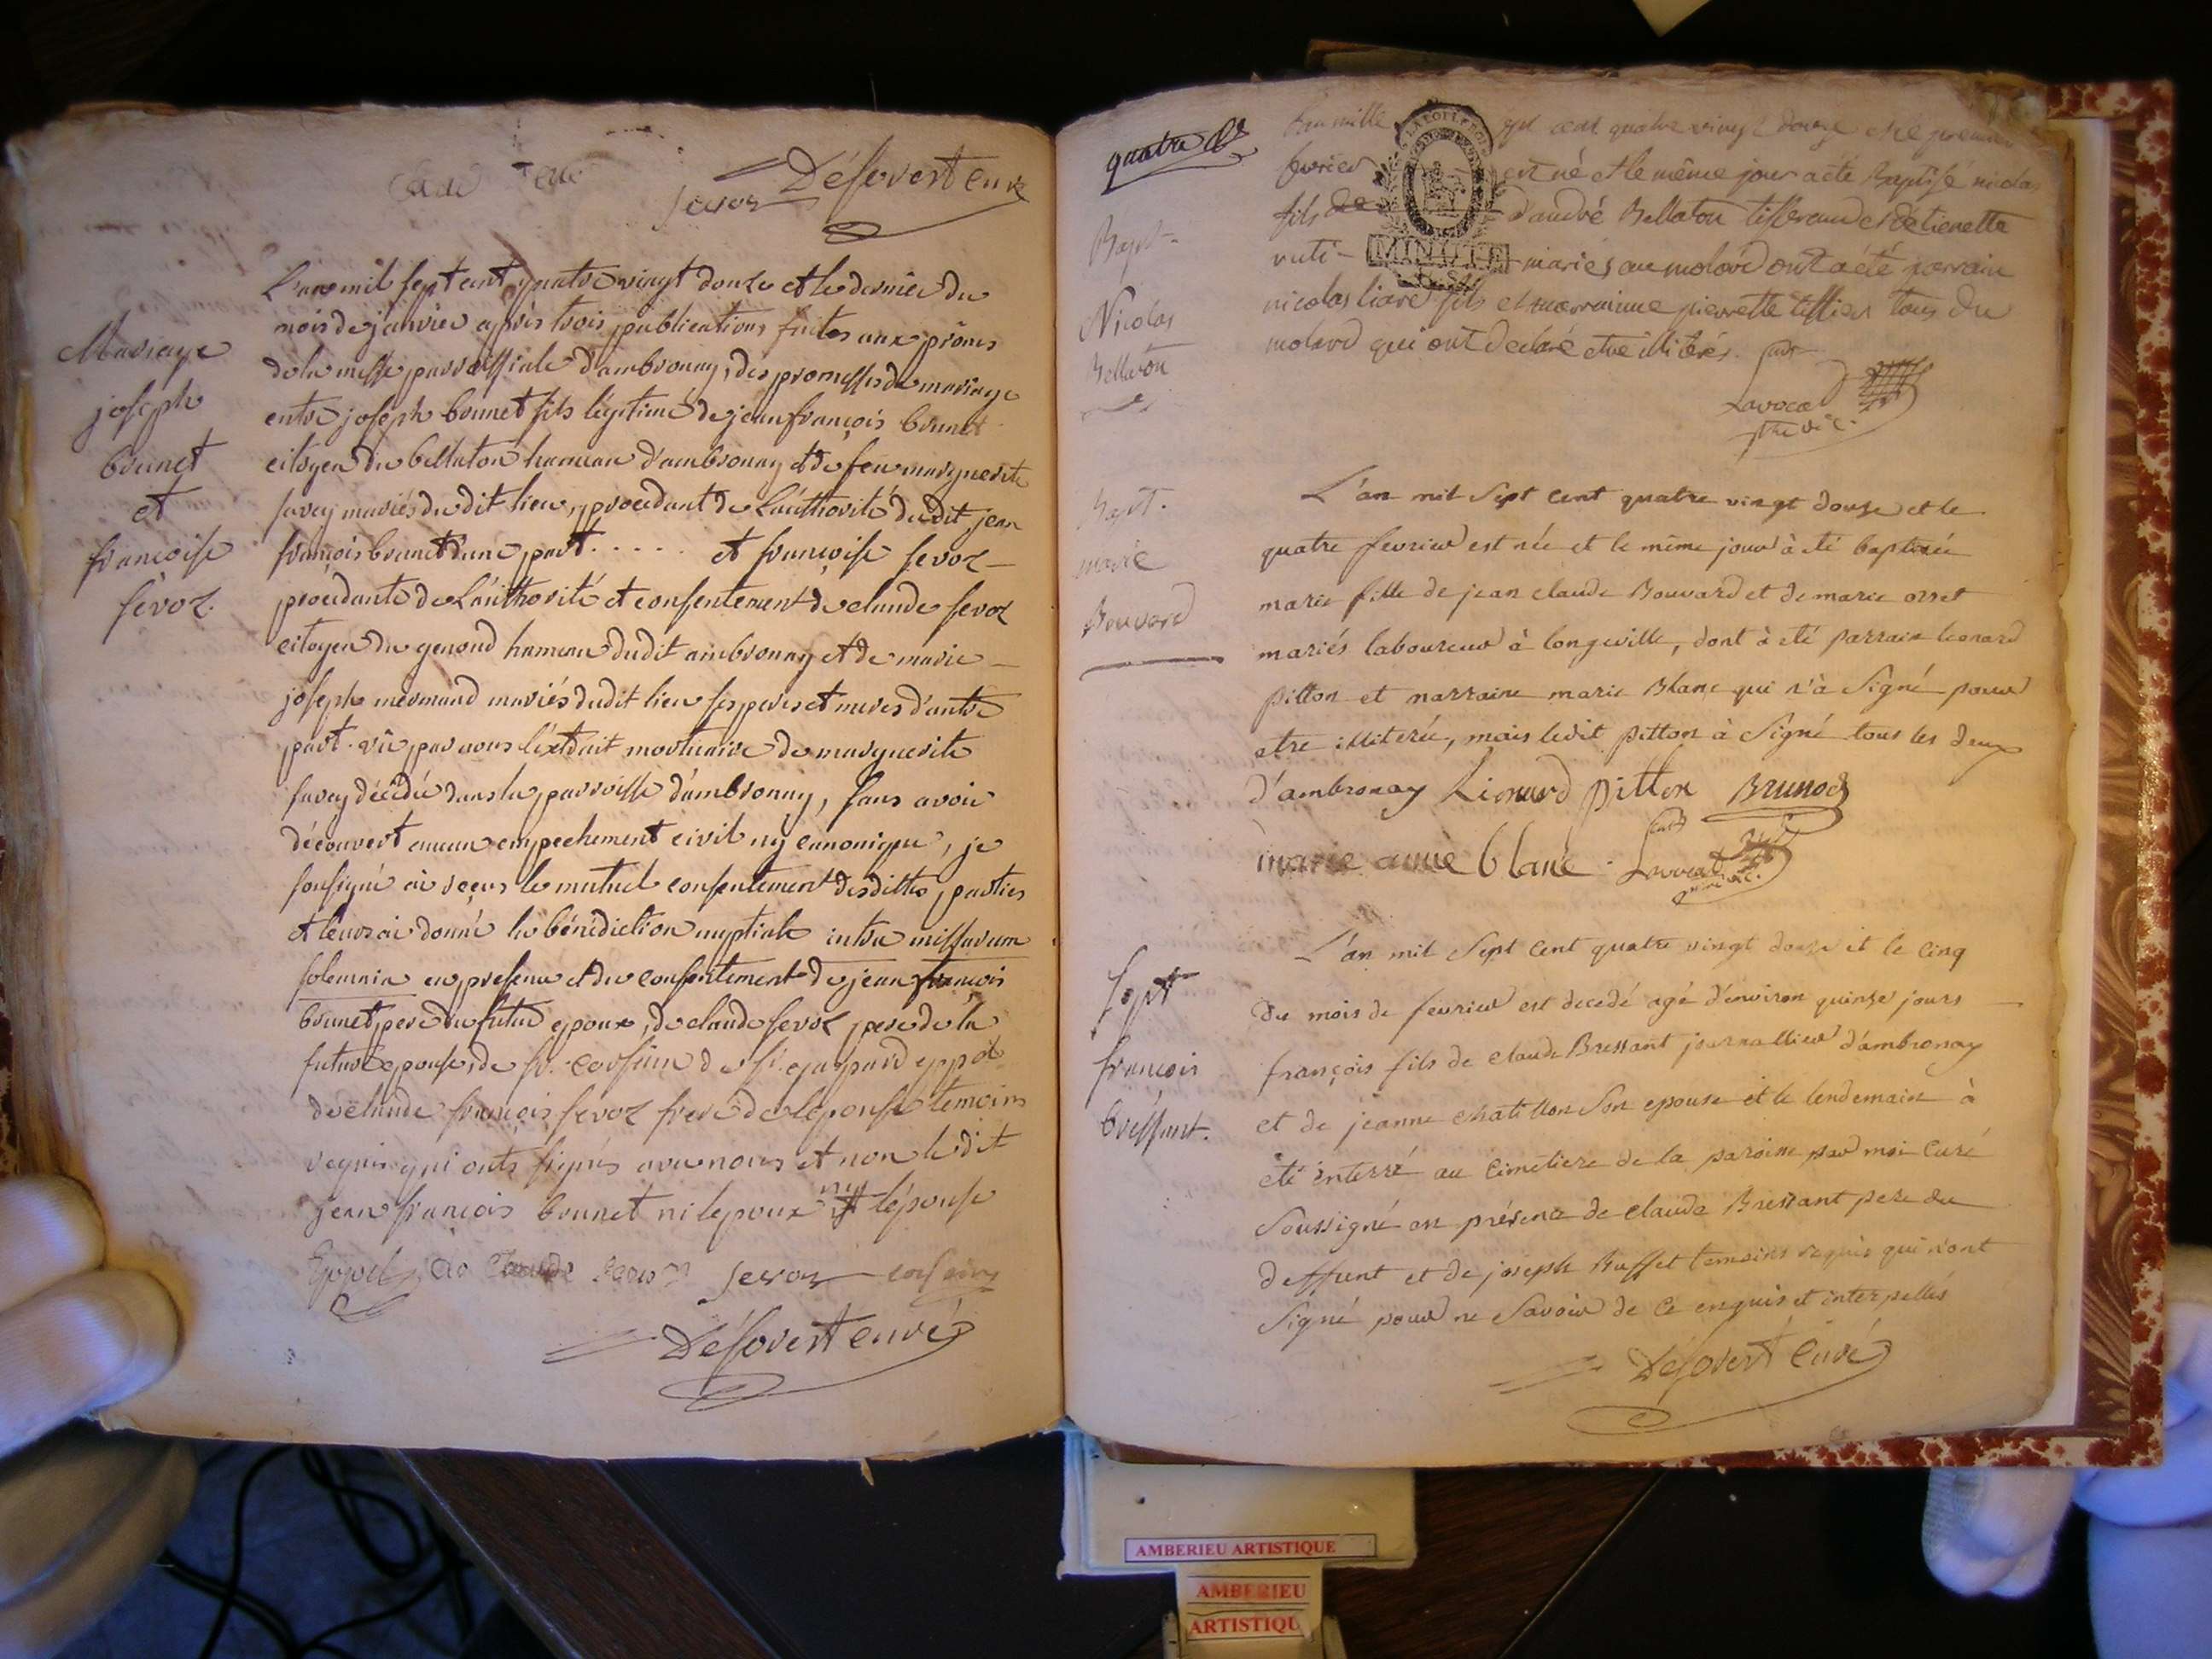 Désovert curé
fevoz
Mariage
joseph
brunet
et
francoise
févoz.
L'an mil sept cent quatre vingt douze et le dernier du
mois de janvier après trois publications faites aux prônes
de la messe parroissiale d'ambronay, des promesses de mariage
entre joseph brunet fils légitime de jean françois brunet
citoyen du bellaton hameau d'ambronay et de feu marguerite
favey mariés dudit lieu, procedant de L'aúthorité dudit jean
françois brunet d'une part. . . . . et françoise fevoz
procedante de L'aúthorité et consentement de claude fevoz
citoyen du genoud hameau dudit ambronay et de marie
joseph mermand mariés dudit lieu ses peres et meres d'autre
part. vû par nous l'éxtrait mortuaire de marguerite
favey décédée dans la parroisse d'ambronay, sans avoir
découvert aucun empechement civil ny canonique, je
soussigné ai reçus le mutuel consentement desdittes parties
et leurs ai donné la bénédiction nuptiale intra missarum
solemnia en presence et du consentement de jean françois
brunet pere du futur epoux, de claude fevoz pere de la
future epouse, de sr. corsain de sr. gaspard eppel
de claude françois fevoz frere de l'epouse temoins
requis qui onts signés avec nous et non ledit
jean françois brunet ni lepoux ny l'épouse
Eppel Claude fevoz fevoz
Désovert curé
quatre
L'an mille sept cent quatre vingt douze et le premier
fevrier est né et le même jour a été Baptisé nicolas
fils de d'andré Bellaton tisserand et d'etienette
ruti- mariés au molard ont a été parrain
nicolas liare fils et marrainne pierrette tissier tous du
molard qui ont declaré etre illiterés.
Lavocat
ptre vic.
MINUTE
LA LOI LE ROI
Bapt.
Nicolas
Bellaton
Bapt.
marie
Bouvard
L'an mil Sept Cent quatre vingt douze et le
quatre fevrier est née et le même jour à eté baptisée
marie fille de jean claude Bouvard et de marie orset
mariés laboureur à longeville, dont à eté parrain leonard
pitton et marraine marie Blanc qui n'à Signé pour
etre illiterée, mais ledit pitton à Signé tous les deux
d'ambronay Lionard pitton Brunod
marie anne blanc Lavocat
Sept
françois
bressant.
L'an mil Sept Cent quatre vingt douze et le cinq
du mois de fevrier est decedé agé d'environ quinze jours
françois fils de claude Bressant journallier d'ambronay
et de jeanne chatillon Son epouse et le lendemain à
eté enterré au Cimetiere de la paroisse par moi Curé
Soussigné en présence de claude Bressant pere du
deffunt et de joseph Buffet temoins requis qui n'ont
Signé pour ne Savoir de Ce enquis et interpellés
Désovert Curé
AMBERIEU ARTISTIQUE
AMBERIEU
ARTISTIQU